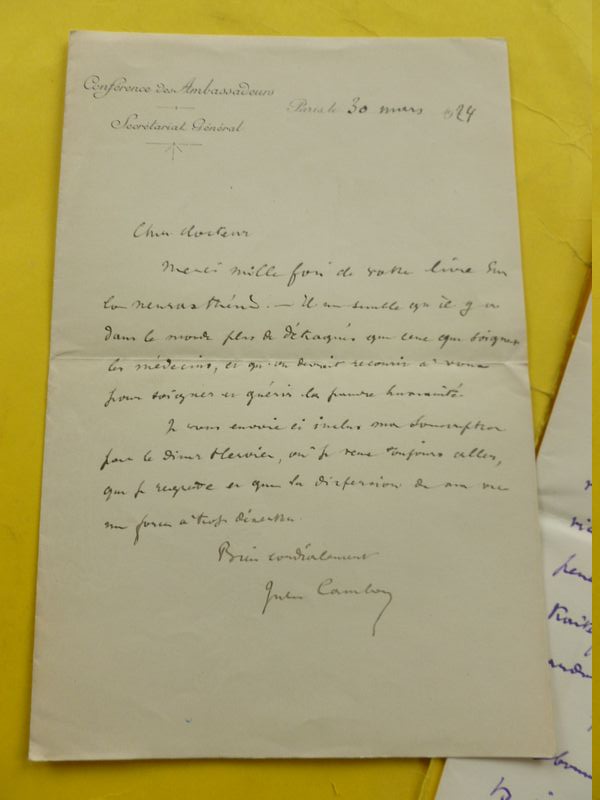 Conférence des Ambassadeurs
Secrétariat Général
Paris le 30 mars 1924
Cher docteur
Merci mille fois de votre livre sur
la neurasthénie. — Il me semble qu'il y a
dans le monde plus de détraqués que ceux que soignent
les médecins, et qu'on devrait recourir à vous
pour soigner et guérir la pauvre humanité.
Je vous envoie ci inclus ma souscription
pour le diner Hervieu, où je veux toujours aller,
que je regrette et que la dispersion de ma vie
me force à trop déserter.
Bien cordialement
Jules Cambon